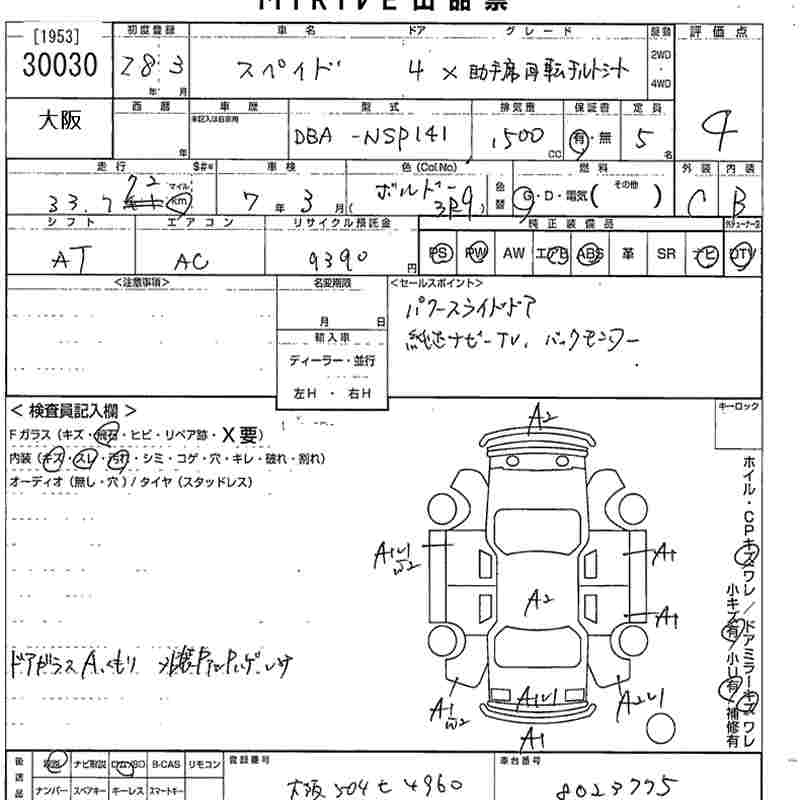 MIRIVE出品票
[1953] 初度登録 車名 ドア グレード 駆動 評価点
30030 28 3 スペイド 4 X 助手席回転チルトシート 2WD・4WD
年 月
大阪 西暦 車歴 型式 排気量 保証書 定員 4
※記入は自家用 DBA -NSP141 1500 CC 有・無 5 名
年
走行 S#* 車検 色(Col No) 燃料 外装 内装
33.7 72 マイル km 7 年 3 月 ボルドー ( 3R9 ) 色替 G・D・電気( その他 ) C B
シフト エアコン リサイクル預託金 純正装備品
AT AC 9390 円 PS PW AW エアB ABS 革 SR ナビ DTV
<注意事項> 名変期限 <セールスポイント>
月 日 パワースライドドア
輸入車 純正ナビーTV、バックモニター
ディーラー・並行
左H ・ 右H
<検査員記入欄> キーロック
Fガラス(キズ・飛石・ヒビ・リペア跡・X要)
内装(キズ・スレ・汚れ・シミ・コゲ・穴・キレ・破れ・割れ)
オーディオ(無し・穴)/タイヤ(スタッドレス)
A2
A1U1
W2
A1
A2
A1
ドアガラスA、くもり
A1
W2
A1U1
A2U1
A1
ホイル・CPキズワレ/ドアミラーキズワレ
小キズ有/小U有・補修有
後送品 ナビ取説 B-CAS リモコン 登録番号 車台番号
ナンバー スペアキー キーレス スマートキー 大阪 504 せ 4960 8023775